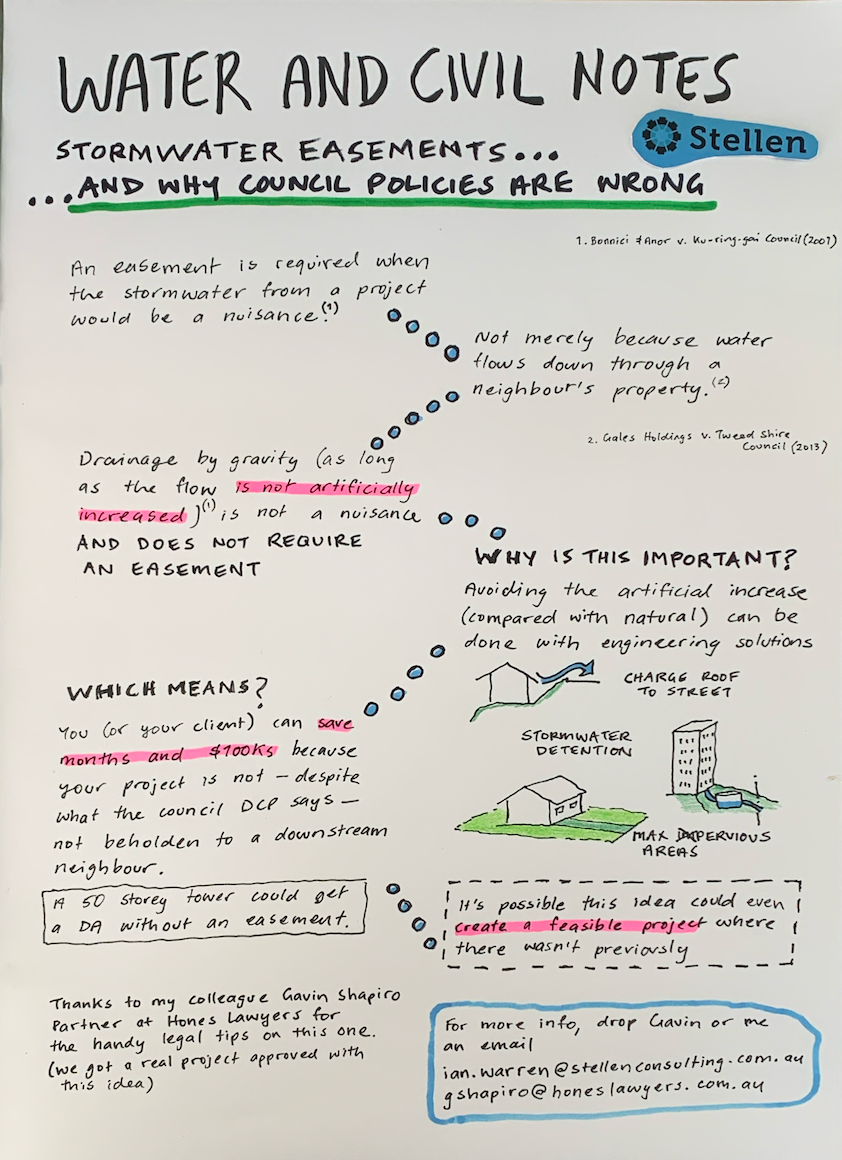 WATER AND CIVIL NOTES
Stellen
STORMWATER EASEMENTS...
...AND WHY COUNCIL POLICIES ARE WRONG
1. Bonnici & Anor v. Ku-ring-gai Council (2001)
An easement is required when
the stormwater from a project
would be a nuisance.(1)
Not merely because water
flows down through a
neighbour's property.(2)
2. Gales Holdings v. Tweed Shire
Council (2013)
Drainage by gravity (as long
as the flow is not artificially
increased)(1) is not a nuisance
AND DOES NOT REQUIRE
AN EASEMENT
WHY IS THIS IMPORTANT?
Avoiding the artificial increase
(compared with natural) can be
done with engineering solutions
CHARGE ROOF
TO STREET
STORMWATER
DETENTION
MAX PERVIOUS
AREAS
WHICH MEANS?
You (or your client) can save
months and $100Ks because
your project is not – despite
what the council DCP says –
not beholden to a downstream
neighbour.
A 50 storey tower could get
a DA without an easement.
It's possible this idea could even
create a feasible project where
there wasn't previously
Thanks to my colleague Gavin Shapiro
Partner at Hones Lawyers for
the handy legal tips on this one.
(we got a real project approved with
this idea)
For more info, drop Gavin or me
an email
ian.warren@stellenconsulting.com.au
gshapiro@honeslawyers.com.au